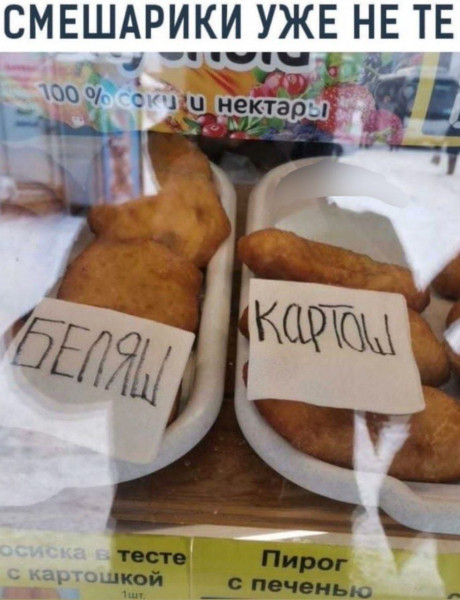 СМЕШАРИКИ УЖЕ НЕ ТЕ
100 % соки и нектары
БЕЛЯШ
КАРТОШ
осиска в тесте
с картошкой
1шт.
Пирог
с печенью